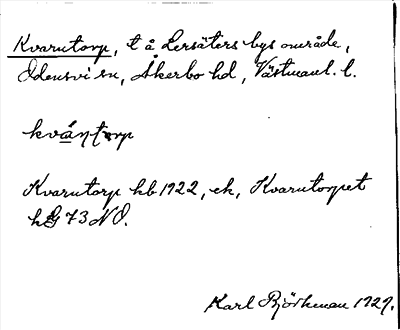 Kvarntorp, t å Lersäters bys område,
Odensvi sn, Åkerbo hd, Västmanl. l.
kvá̱ṇtorp
Kvarntorp hb 1922, ek, Kvarntorpet
hG 73 NO.
Karl Björkman 1929.